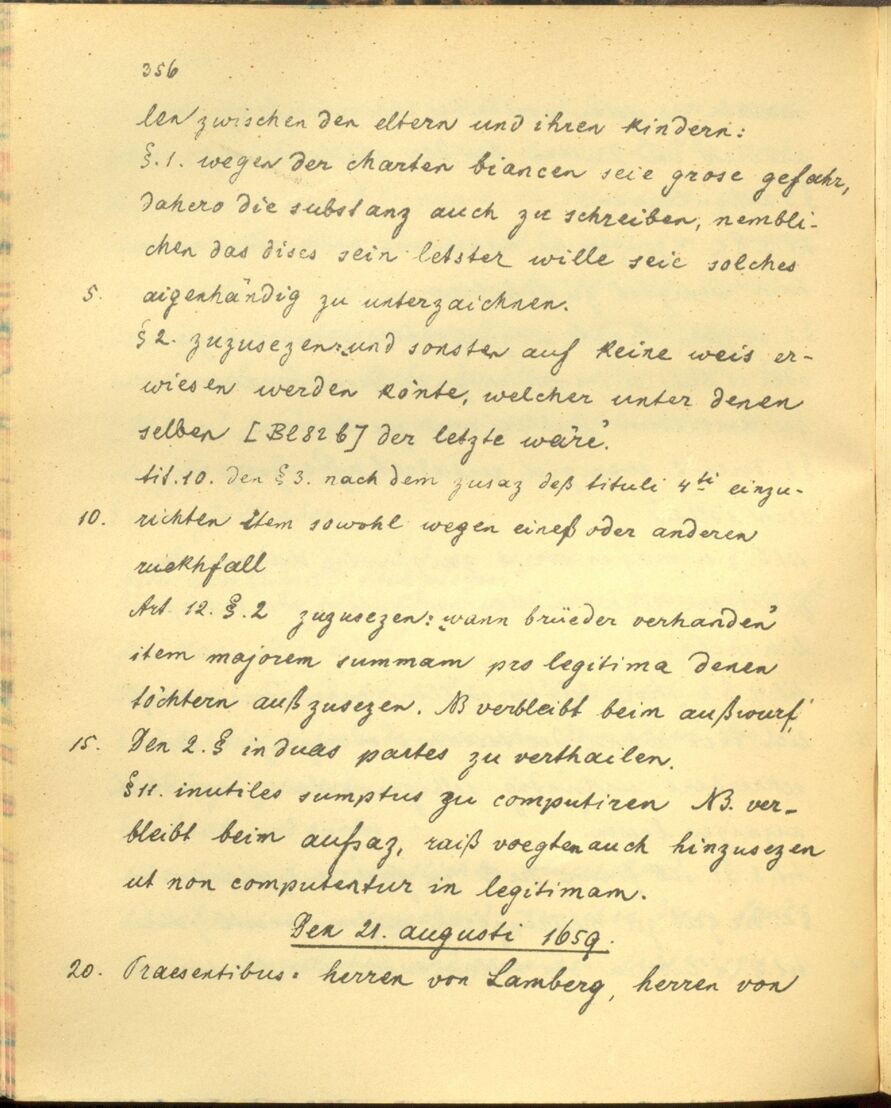 356
len zwischen den eltern und ihren kindern:
§.1. wegen der charten biancen seie grose gefahr,
dahero die substanz auch zu schreiben, nembli-
chen das dises sein letster wille seie solches
5. aigenhändig zu unterzaichnen.
§ 2. zuzusezen: „und sonsten auf keine weis er-
wiesen werden könte, welcher unter denen
selben [Bl 82 b] der letzte wäre".
tit. 10. den § 3. nach dem zusaz deß tituli 4ti einzu-
10. richten item sowohl wegen eineß oder anderen
ruckhfall
Art. 12. §. 2 zuzusezen: „wann brüeder verhanden"
item majorem summam pro legitima denen
töchtern außzusezen. NB verbleibt beim außwurf,
15. Den 2. § in duas partes zu verthailen.
§ 11. inutiles sumptus zu computiren NB. ver-
bleibt beim aufsaz, raiß voegten auch hinzusezen
ut non computentur in legitimam.
Den 21. augusti 1659.
20. Praesentibus: herren von Lamberg, herren von